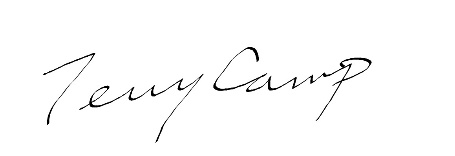 Terry Camp